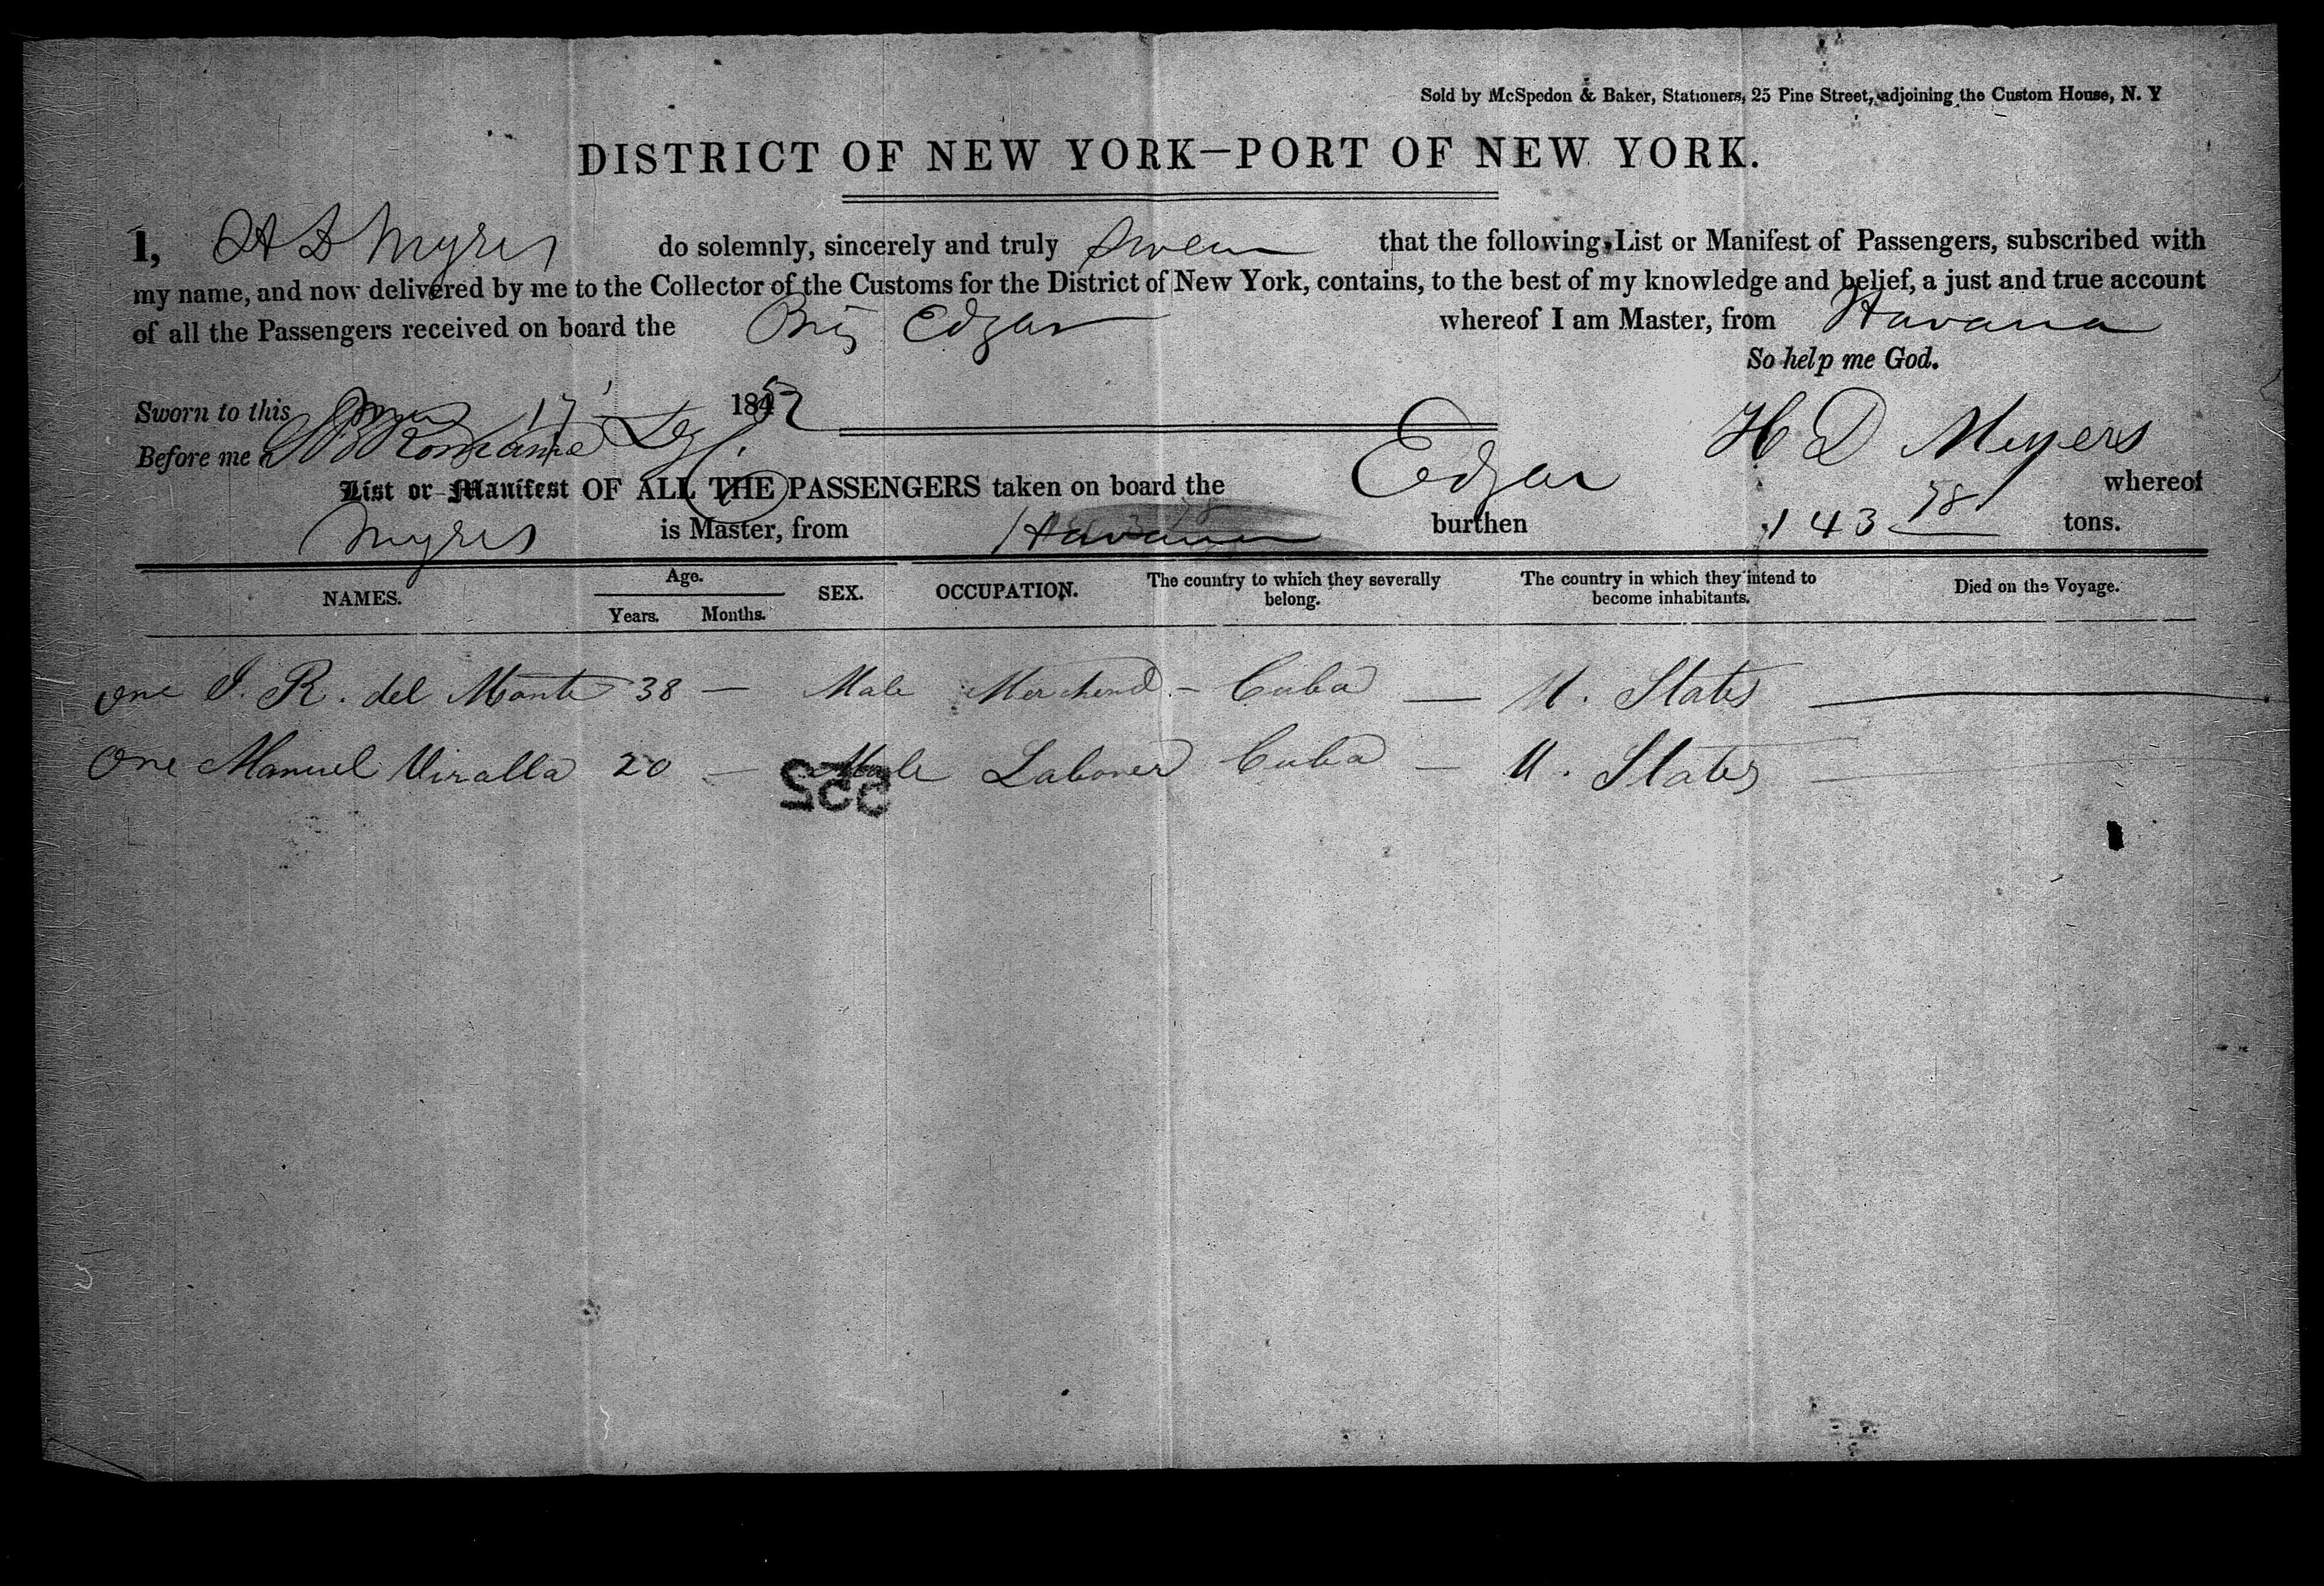 Sold by McSpedon & Baker, Stationers, 25 Pine Street, adjoining the Custom House, N. Y
DISTRICT OF NEW YORK—PORT OF NEW YORK.
I, H D Myres do solemnly, sincerely and truly swear that the following List or Manifest of Passengers, subscribed with
my name, and now delivered by me to the Collector of the Customs for the District of New York, contains, to the best of my knowledge and belief, a just and true account
of all the Passengers received on board the Brig Edgar whereof I am Master, from Havana
So help me God.
Sworn to this 17 1852
Before me H D Meyers
List or Manifest OF ALL THE PASSENGERS taken on board the Edgar whereof
Myres is Master, from Havana burthen 143 78 tons.
NAMES. Age. Years. Months. SEX. OCCUPATION. The country to which they severally belong. The country in which they intend to become inhabitants. Died on the Voyage.
One J. R. del Monte 38 — Male Merchend - Cuba — U. States —
One Manuel Viralla 20 — Male Laborer Cuba — U. States —
252